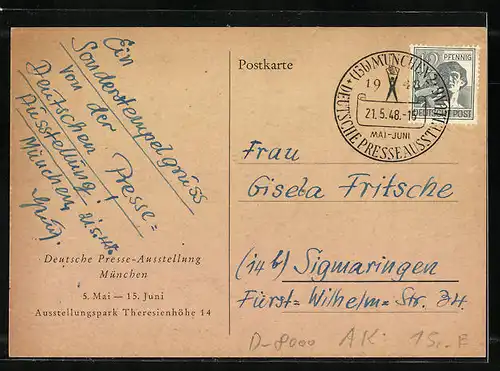 Ein
Sonderstempelgruss
von der
Deutschen Presse=
Ausstellung!
München, 21.5.48.
Postkarte
(13b) MÜNCHEN 2
1948
21.5.48.-19
MAI-JUNI
DEUTSCHE PRESSEAUSSTELLUNG
PFENNIG
DEUTSCHE POST
Frau
Gisela Fritsche
(14b) Sigmaringen
Fürst=Wilhelm=Str. 34.
Deutsche Presse-Ausstellung
München
5. Mai — 15. Juni
Ausstellungspark Theresienhöhe 14
D-8000 AK 15,- E